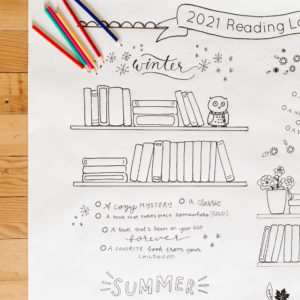 2021 Reading Lo
winter
A cozy MYSTERY
a classic
A book that takes place somewhere (COLD)
A book that's been on your list
forever
A FAVORITE book from your
CHILDHOOD
SUMMER